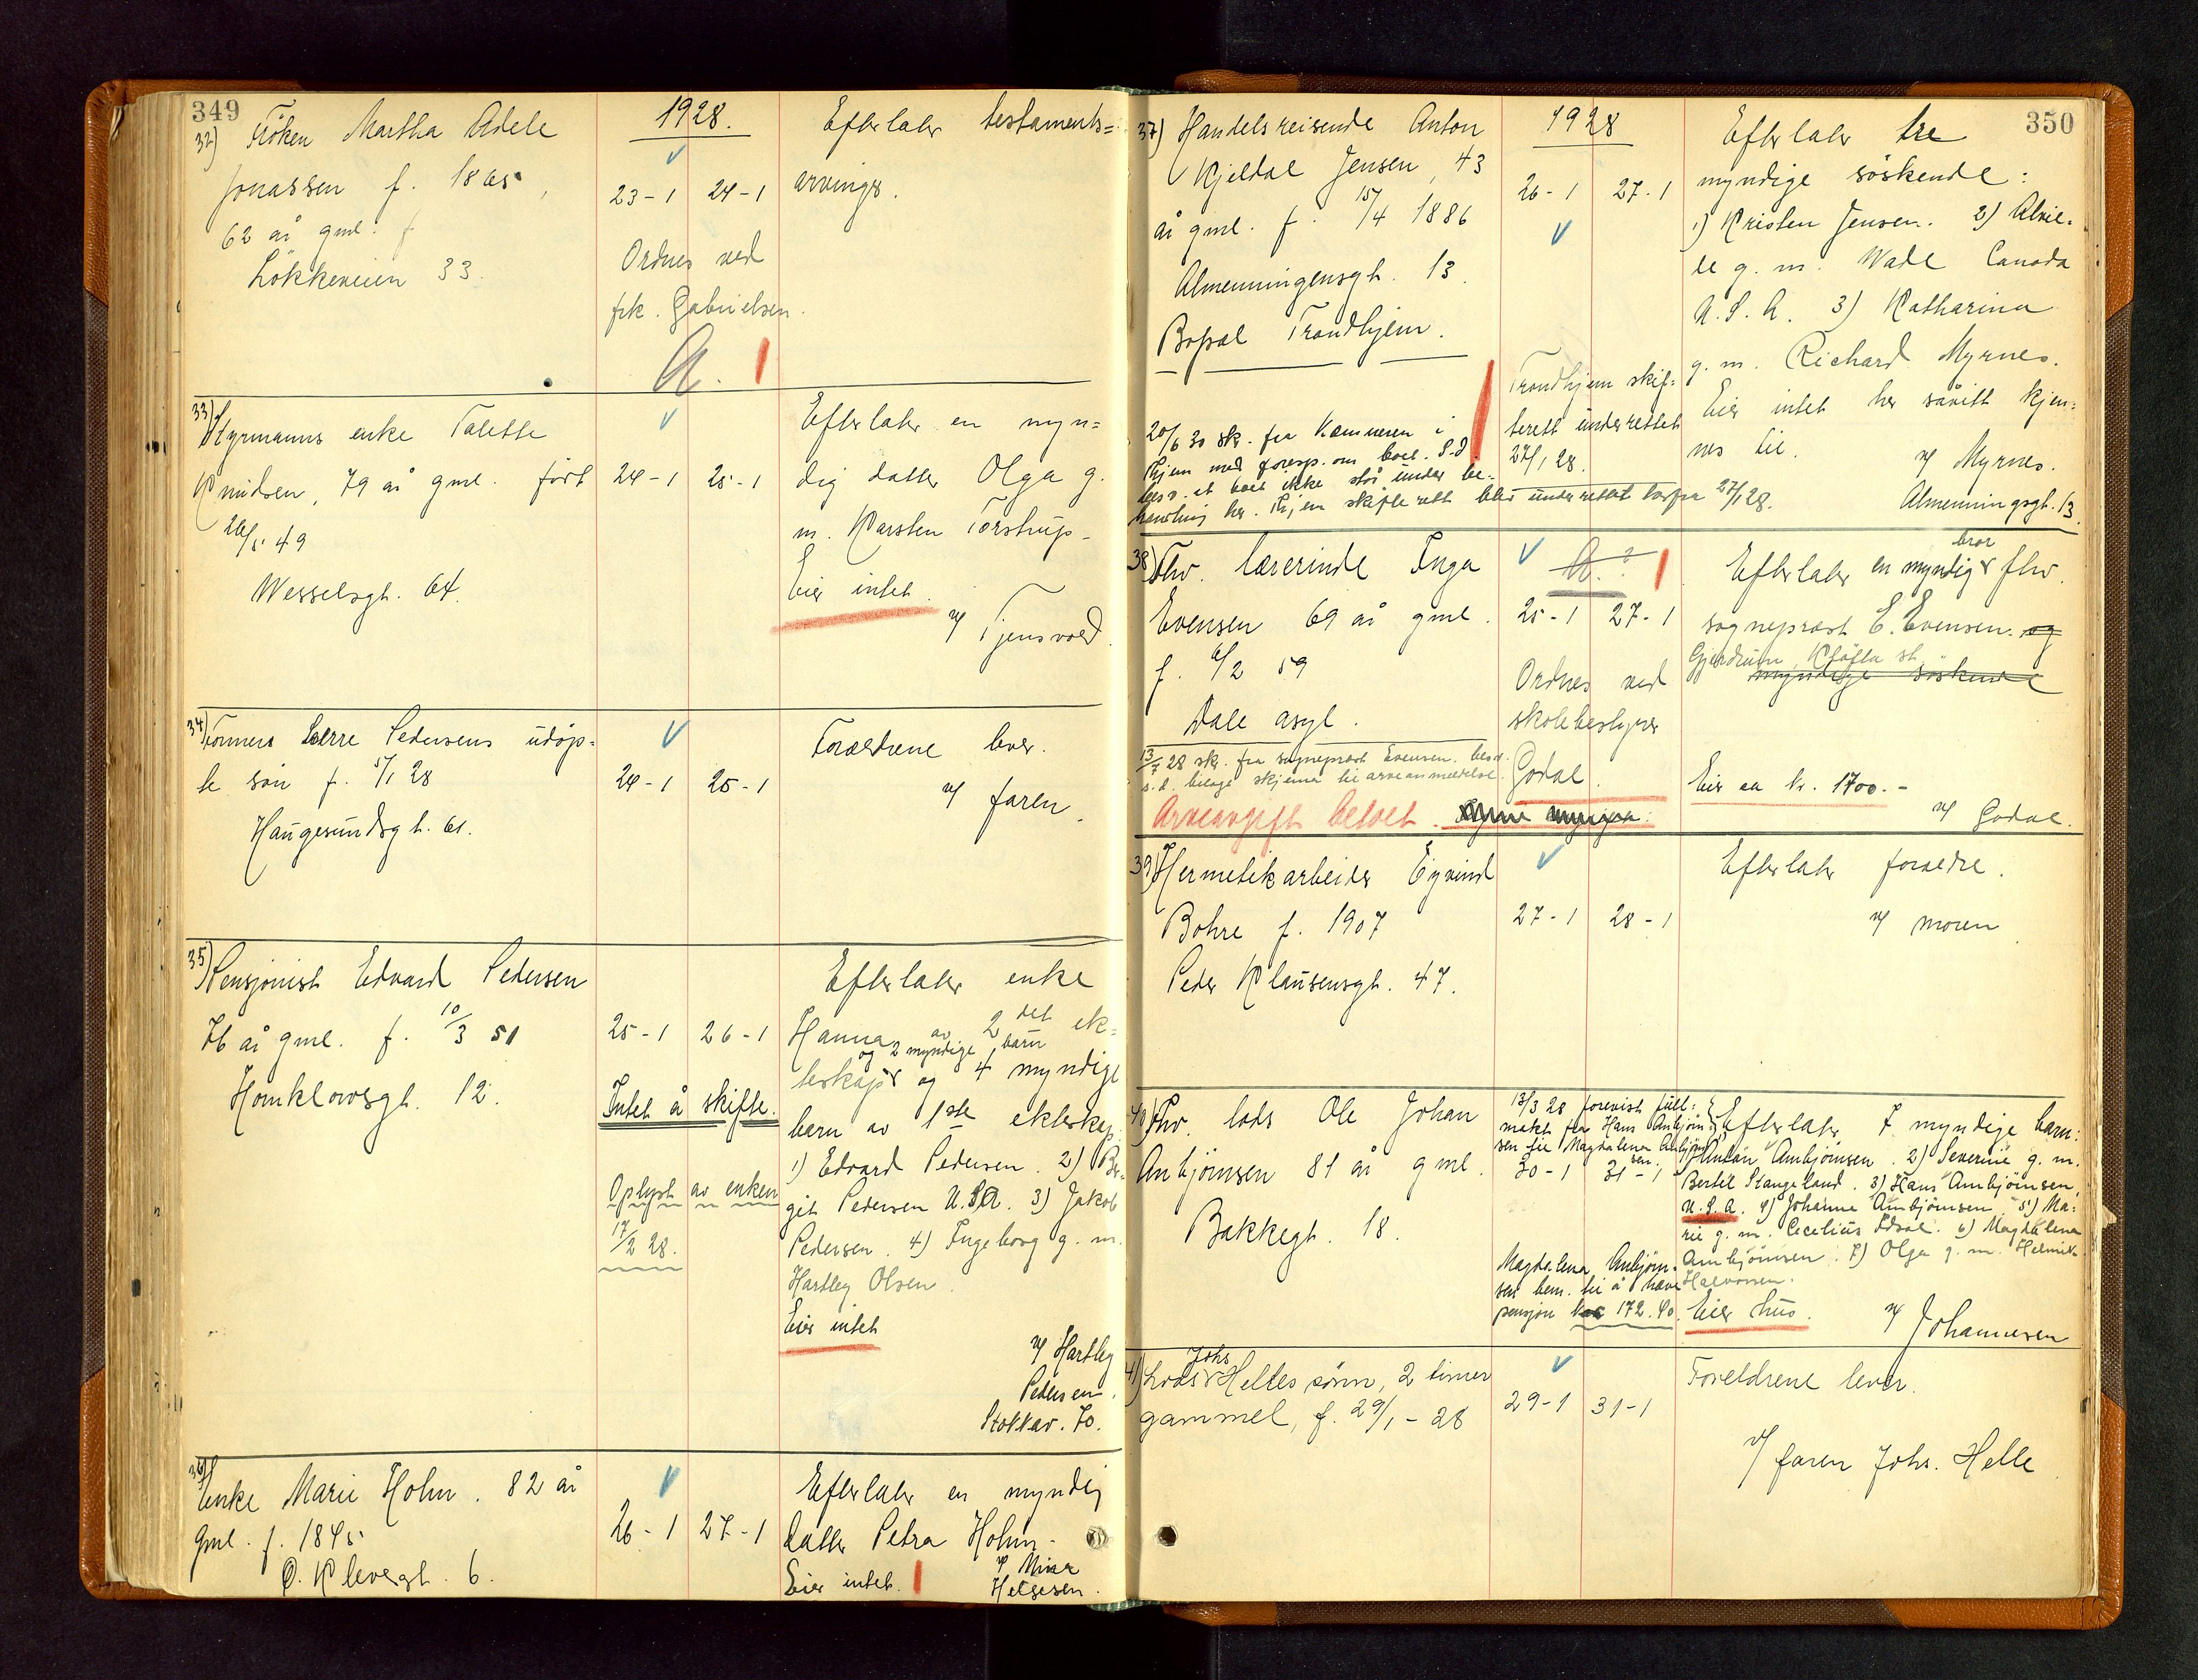 349
1928.
32) Frøken Martha Adele
Jonassen f. 1865,
62 år gml. f
Løkkeveien 33.
23-1 24-1
Ordnes ved
frk. Gabrielsen.
A.
Efterlater testaments=
arvinger.
33) Styrmanns enke Talette
Knudsen, 79 år gml. født
26/5 49
Wesselsgt. 64.
24-1 25-1
Efterlater en myn=
dig datter Olga g.
m. Karsten Torstrup.
Eier intet.
v/ Tjensvold.
34) Formers Sverre Pedersens udøp=
te søn f. 5/1 28
Haugesundsgt. 61.
24-1 25-1
Forældrene lever.
v/ faren.
35) Pensjonist Edvard Pedersen
76 år gml. f. 10/3 51
Homklowsgt. 12.
25-1 26-1
Intet å skifte.
Oplyst av enken
17/2 28.
Efterlater enke
Hanna av 2det ek=
og 2 myndige barn
teskap og 4 myndige
barn av 1ste ekteskap:
1) Edvard Pedersen. 2) Bir=
git Pedersen U.S.A. 3) Jakob
Pedersen. 4) Ingeborg g. m.
Hartley Olsen.
Eier intet
v/ Hartley
Pedersen.
Stokkav. 70.
36) Enke Marie Holm. 82 år
gml. f. 1845
O. Klevegt. 6.
26-1 27-1
Efterlater en myndig
datter Petra Holm.
Eier intet.
v/ Mina
Helgesen.
350
1928
37) Handelsreisende Anton
Kjeldal Jensen, 43
år gml. f. 15/4 1886
Almenningensgt. 13.
Bopæl Trondhjem.
26-1 27-1
Trondhjem skif=
terett underrettet
27/1 28.
20/6 30 skr. fra Kæmneren i
Thjem med foresp. om boet. S.d.
besv. at boet ikke står under be=
handling her. Thjem skifterett blev underrettet herfra 27/1 28.
Efterlater tre
myndige søskende:
1) Kristen Jensen. 2) Alvil=
de g. m. Wade Canada
U.S.A. 3) Katharina
g. m. Richard Myrnes.
Eier intet her såvitt kjen=
nes til.
v/ Myrnes.
Almenningsgt. 13.
38) Fhv. lærerinde Inga
Evensen 69 år gml.
f. 6/2 59
Dale asyl.
A.
25-1 27-1
Ordnes ved
skolebestyrer
Godal.
13/7 28 skr. fra sogneprest Evensen. besv.
s.d. bilagt skjema til arveanmeldelse.
Arveavgift betalt.
Efterlater en myndig bror fhv.
sogneprest E. Evensen. og
Gjerdrum, Kløfta st.
myndige søskende
Eier ca kr. 1700.-
v/ Godal.
39) Hermetikarbeider Eyvind
Bohre f. 1907
Peder Klausensgt. 47.
27-1 28-1
Efterlater forældre.
v/ moren
40) Fhv. lods Ole Johan
Anbjørnsen 81 år gml.
Bakkegt. 18.
13/3 28 forevist full=
makt fra Hans Anbjørn=
sen til Magdalena Anbjørn=
sen.
30-1 31-1
Magdalena Anbjørn=
sen bem. til å hæve
pensjon kr 172.40.
Efterlater 7 myndige barn:
1) Anton Anbjørnsen. 2) Severine g. m.
Bertil Stangeland. 3) Hans Anbjørnsen,
U.S.A. 4) Johanna Anbjørnsen 5) Ma=
rie g. m. Cecelius Edsal. 6) Magdalena
Anbjørnsen. 7) Olga g. m. Helmik
Halvorsen.
Eier hus.
v/ Johannesen
41) Lods Johs Helles sønn, 2 timer
gammel, f. 29/1-28
29-1 31-1
Foreldrene lever.
v/ faren Johs. Helle